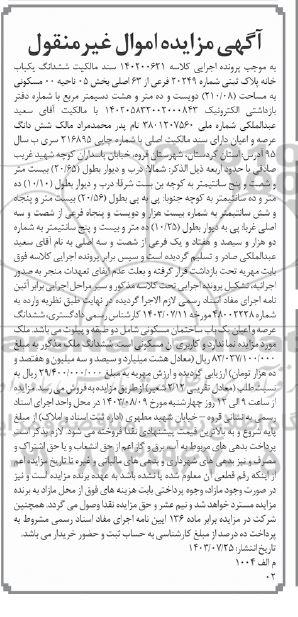 آگهی مزایده اموال غیر منقول
به موجب پرونده اجرایی کلاسه ۱۴۰۲۰۰۶۲۱ سند مالکیت ششدانگ یکباب
خانه پلاک ثبتی شماره ۲۰۲۴۹ فرعی از ۶۳ اصلی بخش ۰۵ ناحیه ۰۰ مسکونی
به مساحت (۲۱۰/۰۸) دویست و ده متر و هشت دسیمتر مربع با شماره دفتر
بازداشتی الکترونیک ۱۴۰۲۰۵۸۳۲۰۰۲۰۰۰۸۴۳ با مالکیت آقای سعید
عبدالملکی شماره ملی ۳۸۰۱۲۰۷۵۶۰ نام پدر محمدمراد مالک شش دانگ
عرصه و اعیان دارای سند مالکیت اصلی با شماره چاپی ۲۱۶۸۹۵ سری ب سال
۹۵ آدرس: استان کردستان، شهرستان قروه، خیابان پاسداران کوچه شهید غریب
صادقی با حدود اربعه ذیل الذکر: شمالا: درب و دیوار بطول (۲۰/۶۵) بیست متر
و شصت و پنج سانتیمتر به کوچه بن بست شرقا: درب و دیوار بطول (۱۰/۱۰) ده
متر و ده سانتیمتر به کوچه جنوبا: پی به پی بطول (۲۰/۵۶) بیست متر و پنجاه
و شش سانتیمتر به شماره بیست هزار و دویست و پنجاه فرعی از شصت و سه
اصلی غربا: پی به دیوار بطول (۱۰/۲۵) ده متر و بیست و پنج سانتیمتر به شماره
دو هزار و سیصد و هفتاد و یک فرعی از شصت و سه اصلی به نام آقای سعید
عبدالملکی صادر و تسلیم گردیده است و سپس برابر پرونده اجرایی کلاسه فوق
بابت مهریه تحت بازداشت قرار گرفته و بعلت عدم ایفای تعهدات منجر به صدور
اجرائیه، تشکیل پرونده اجرایی تحت کلاسه مذکور و سیر مراحل اجرایی برابر آئین
نامه اجرای مفاد اسناد رسمی لازم الاجرا گردیده در نهایت طبق نظریه وارده به
شماره ۴۸۰۰۲۲۲۸ مورخه ۱۴۰۳/۰۷/۱۱ کارشناس رسمی دادگستری، ششدانگ
عرصه و اعیان یک باب ساختمان مسکونی شامل دو طبقه و پیلوت می باشد. ملک
مورد مزایده نما ندارد و کاربری آن مسکونی است. ششدانگ ملک مذکور به مبلغ
۸۳/۰۳۷/۱۰۰/۰۰۰ ریال (معادل هشت میلیارد و سیصد و سه میلیون و هفتصد و
ده هزار تومان) ارزیابی گردیده و ارزش مهریه به مبلغ ۲۹/۴۰۰/۰۰۰/۰۰۰ ریال به
نسبت طلب (معادل تقریبی ۲/۱۲ شعیر) از طریق مزایده به فروش می رسد. مزایده
از ساعت ۹ الی ۱۲ روز چهارشنبه مورخ ۱۴۰۳/۰۸/۰۹ در محل واحد اجرای اسناد
رسمی به نشانی: قروه - خیابان شهید مطهری (اداره ثبت اسناد و املاک) از مبلغ
پایه شروع و به بالاترین قیمت پیشنهادی نقدا فروخته می شود. لازم بذکر است
پرداخت بدهی های مربوطه به آب، برق و گاز اعم از حق انشعاب و یا حق اشتراک و
مصرف و نیز بدهی های شهرداری و بدهی های مالیاتی و غیره تا تاریخ مزایده اعم
از اینکه رقم قطعی آن معلوم شده یا نشده باشد به عهده برنده مزایده است و نیز
در صورت وجود مازاد، وجوه پرداختی بابت هزینه های فوق از محل مازاد به برنده
مزایده مسترد خواهد شد و نیم عشر و حق مزایده نقدا وصول می گردد. همچنین
شرکت در مزایده برابر ماده ۱۳۶ آیین نامه اجرای مفاد اسناد رسمی مشروط به
پرداخت ده درصد از مبلغ کارشناسی به حساب ثبت و حضور خریدار می باشد.
تاریخ انتشار: ۱۴۰۳/۰۷/۲۵
م الف ۱۰۰۴
۰۲